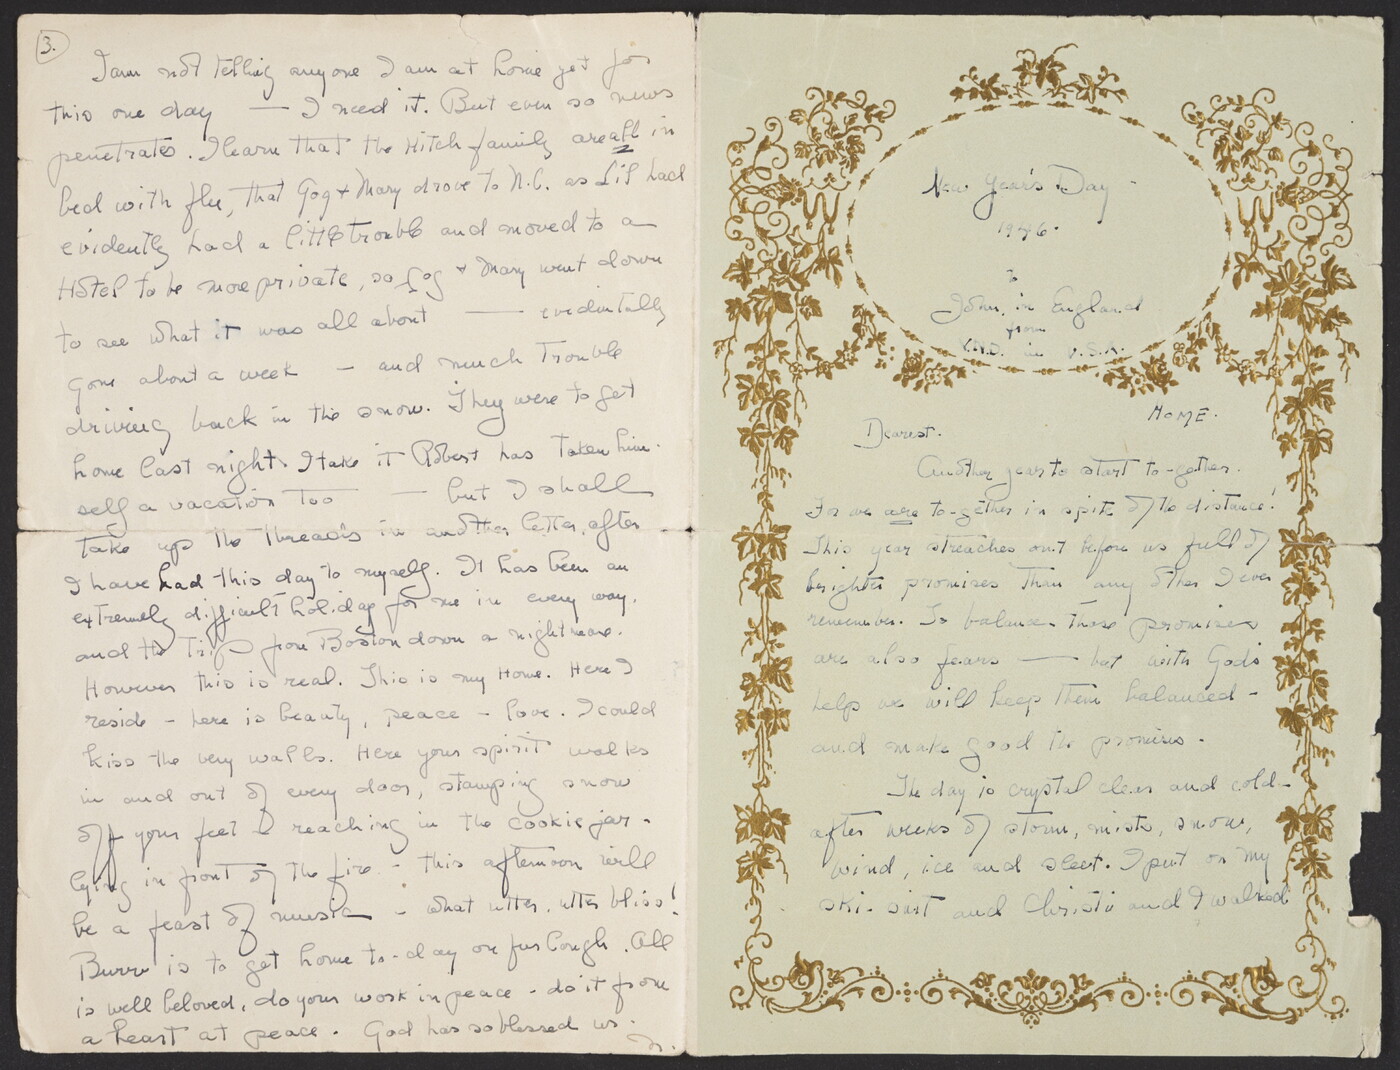 New Year's Day -
1946.
to
John, in England
from
in U.S.A.
HOME.
Dearest.
Another year to start to-gether.
For we are to-gether in spite of the distance!
This year streaches out before us full of
brighter promises than any other I ever
remember. To balance those promises
are also fears — but with God's
help we will keep them balanced -
and make good the promises.
The day is crystal clear and cold -
after weeks of storm, mists, snow,
wind, ice and sleet. I put on my
ski-suit and Christi and I walked
3.
I am not telling anyone I am at home yet for
this one day — I need it. But even so news
penetrates. I learn that the Hitch family are all in
bed with flu, that Gog + Mary drove to N.C. as Lil had
evidently had a little trouble and moved to a
Hotel to be more private, so Gog + Mary went down
to see what it was all about — evidentally
gone about a week - and much trouble
driving back in the snow. They were to get
home last night. I take it Robert has taken him-
self a vacation too — but I shall
take up the threads in another letter, after
I have had this day to myself. It has been an
extremely difficult holiday for me in every way.
and the trip from Boston down a nightmare.
However this is real. This is my Home. Here I
reside - here is beauty, peace - love. I could
kiss the very walls. Here your spirit walks
in and out of every door, stamping snow
off your feet - reaching in the cookie jar -
lying in front of the fire - this afternoon will
be a feast of music - what utter, utter bliss!
Burr is to get home to-day on furlough. All
is well beloved, do your work in peace - do it from
a heart at peace. God has so blessed us.